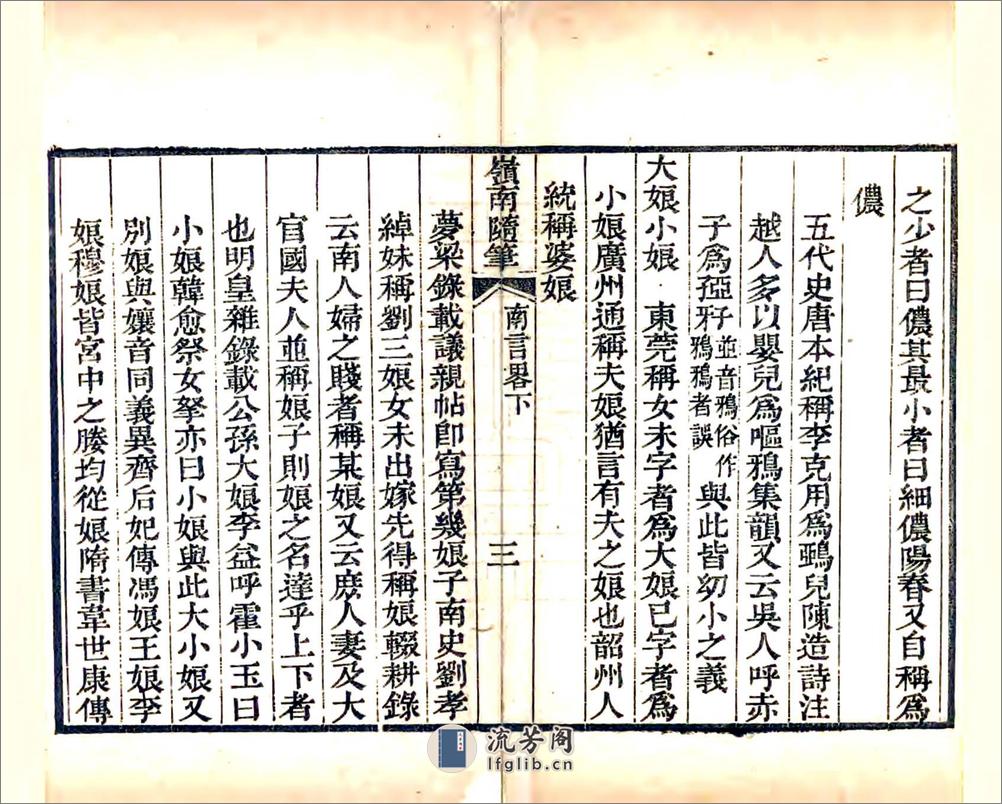 之少者曰儂其最小者曰細儂陽春又自稱爲
儂
五代史唐本紀稱李克用爲鵶兒陳造詩注
越人多以嬰兒爲嘔鴉集韻又云吳人呼赤
子爲孲㺒子並音鴉俗作鴉鴉者誤與此皆幼小之義
大娘小娘 東莞稱女未字者爲大娘已字者爲
小娘廣州通稱夫娘猶言有夫之娘也韶州人
統稱婆娘
嶺南隨筆 南言畧下 三
夢粱錄載議親帖卽寫第幾娘子南史劉孝
綽妹稱劉三娘女未出嫁先得稱娘輟耕錄
云南人婦之賤者稱某娘又云庶人妻及大
官國夫人並稱娘子則娘之名達乎上下者
也明皇雜錄載公孫大娘李益呼霍小玉曰
小娘韓愈祭女孥亦曰小娘與此大小娘又
別娘與孃音同義異齊后妃傳馮娘王娘李
娘穆娘皆宮中之媵均從娘隋書韋世康傳
流芳阁
lfglib.cn